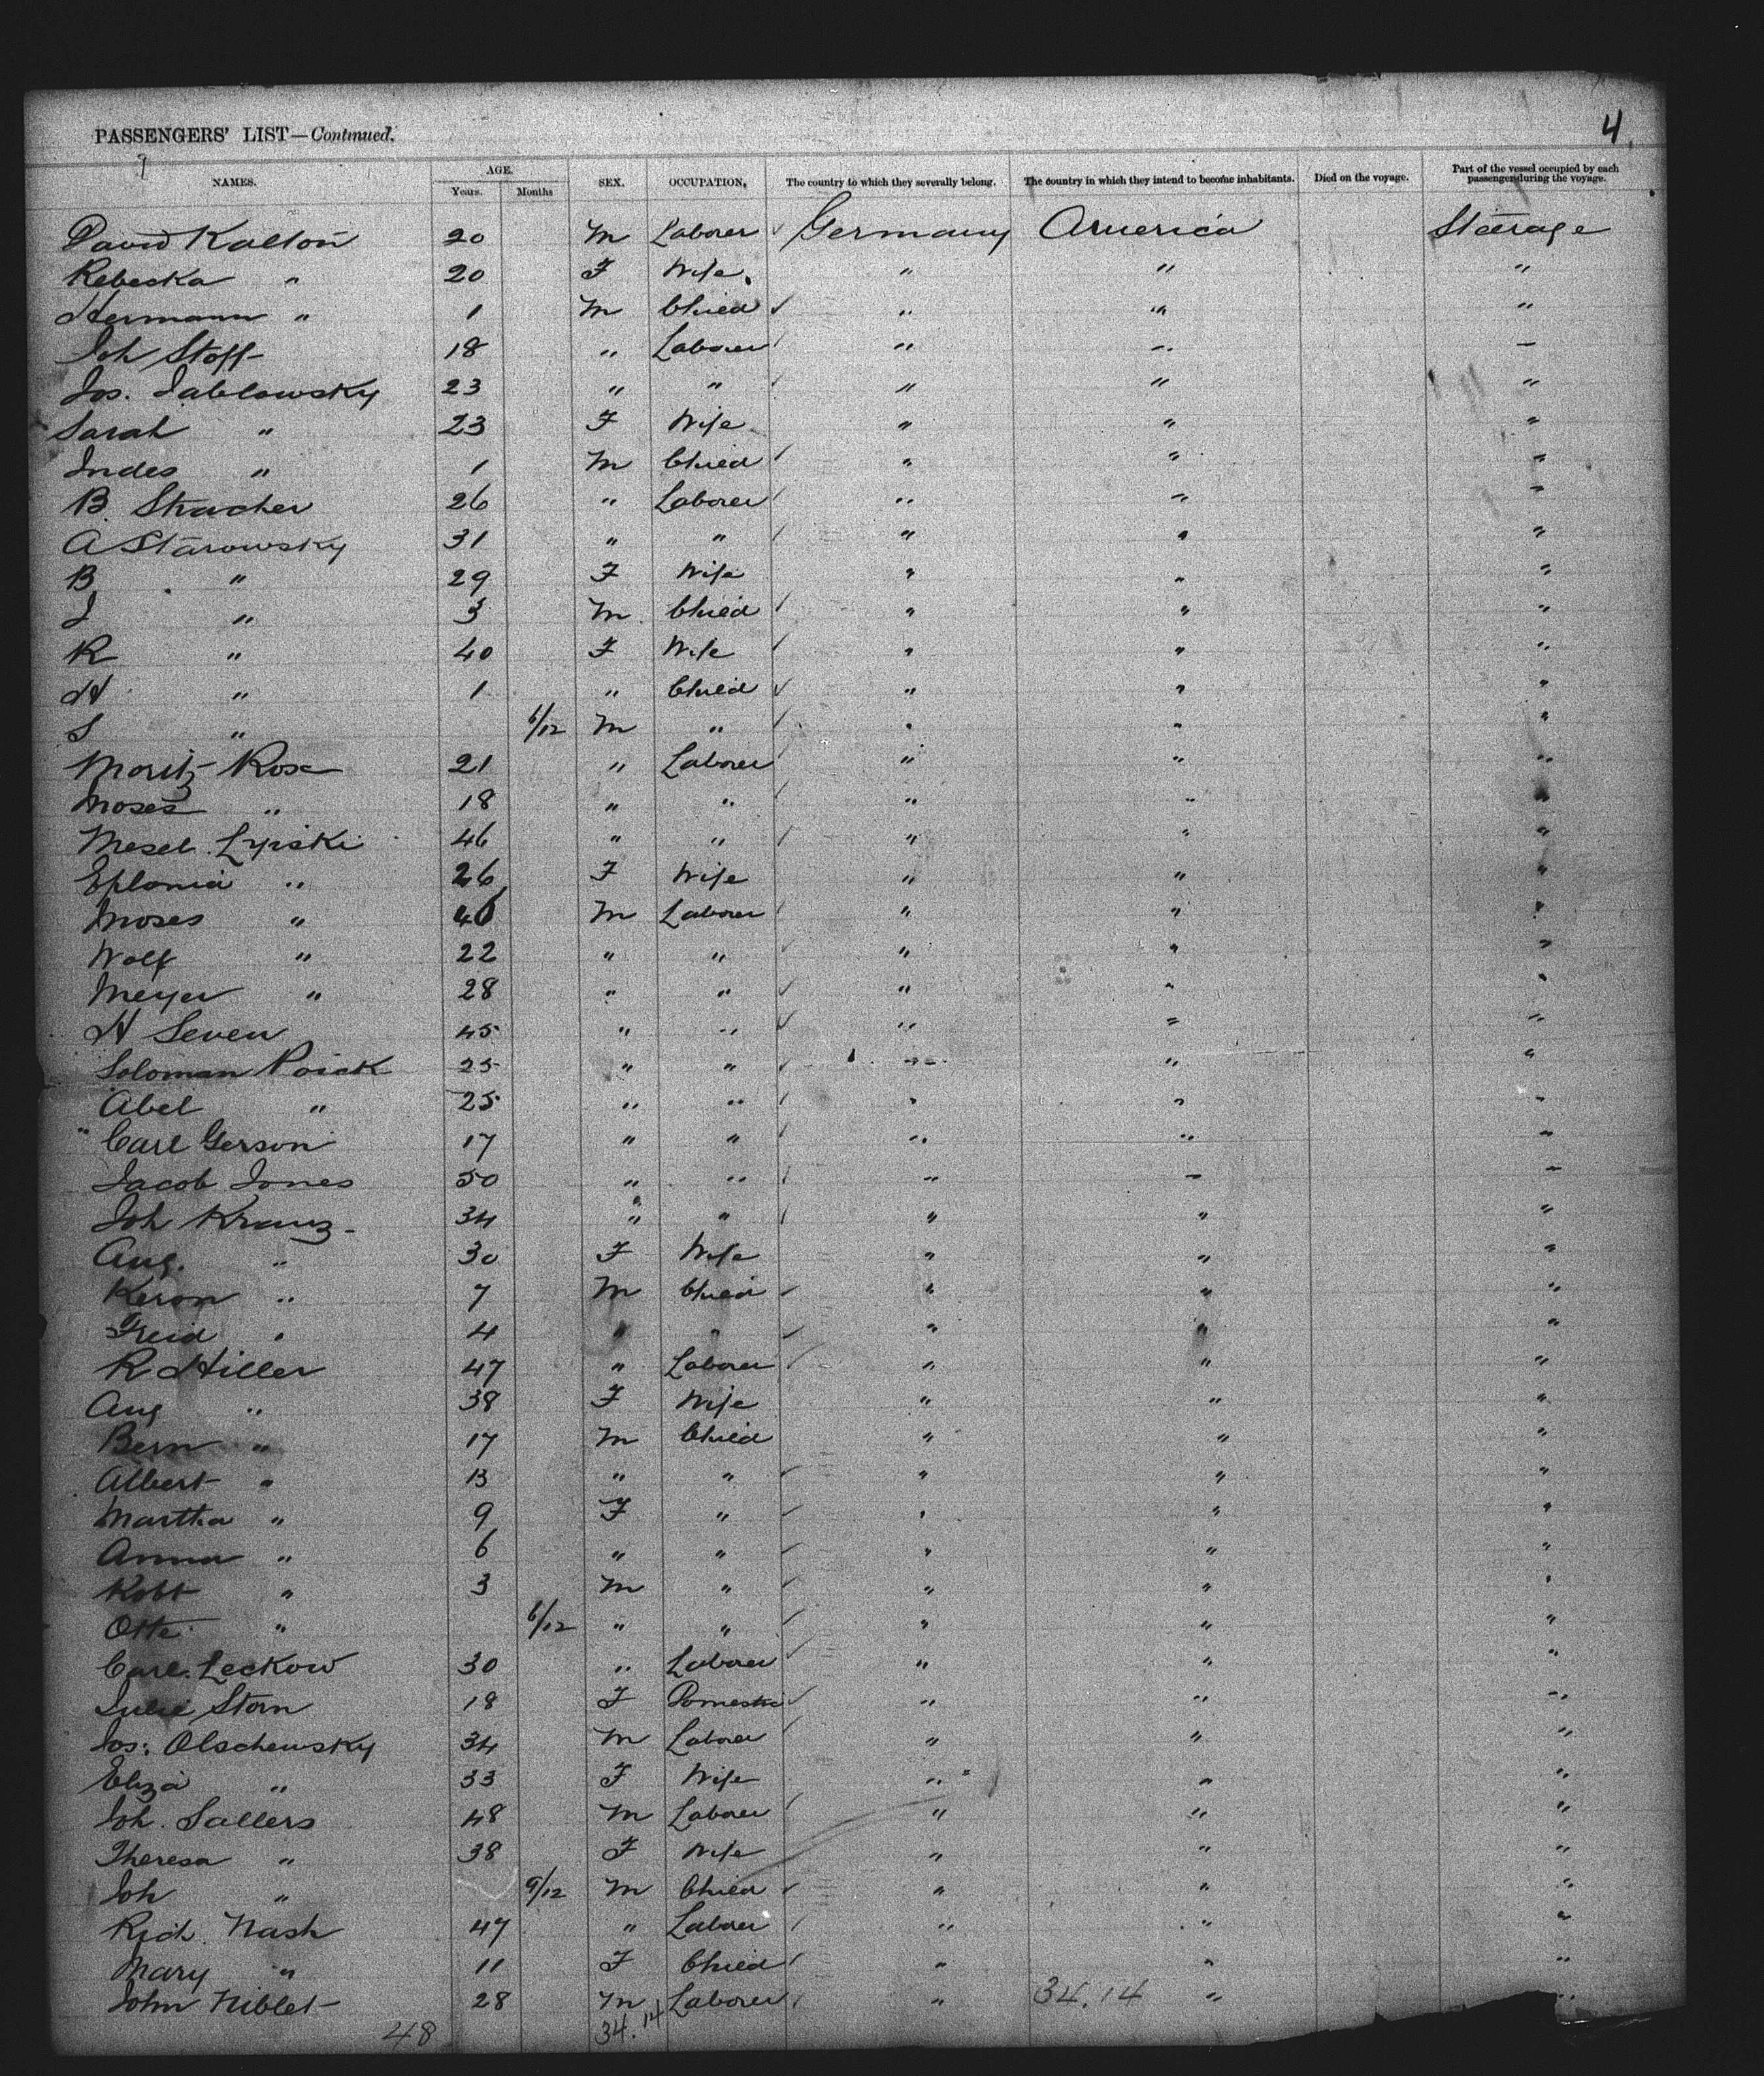 4
PASSENGERS' LIST—Continued.
NAMES. AGE. Years. Months SEX. OCCUPATION, The country to which they severally belong. The country in which they intend to become inhabitants. Died on the voyage. Part of the vessel occupied by each passenger during the voyage.
David Kalton 20 M Laborer Germany America Steerage
Rebecka " 20 F Wife " " "
Hermann " 1 M Child " " "
Joh Stoff 18 " Laborer " " "
Jos. Jablowsky 23 " " " " "
Sarah " 23 F Wife " " "
Indes " 1 M Child " " "
B. Stracher 26 " Laborer " " "
A Starowsky 31 " " " " "
B " 29 F Wife " " "
J " 3 M Child " " "
R " 40 F Wife " " "
H " 1 " Child " " "
S " 6/12 M " " " "
Moritz Rose 21 " Laborer " " "
Moses " 18 " " " " "
Mesel Lypski 46 " " " " "
Eplonia " 26 F Wife " " "
Moses " M Laborer " " "
Wolf " 22 " " " " "
Meyer " 28 " " " " "
H Seven 45 " " " " "
Soloman Poick 25 " " " " "
Abel " 25 " " " " "
" Carl Gerson 17 " " " " "
Jacob Jones 50 " " " " "
Joh Kranz 34 " " " " "
Aug. " 30 F Wife " " "
Keron " 7 M Child " " "
Freid " 4 " " " " "
R Hiller 47 " Laborer " " "
Aug " 38 F Wife " " "
Bern " 17 M Child " " "
Albert " 13 " " " " "
Martha " 9 F " " " "
Anna " 6 " " " " "
Robt " 3 M " " " "
Otte " 6/12 " " " " "
Carl Leckow 30 " Laborer " " "
Julie Storn 18 F Domestic " " "
Jos: Olschewsky 34 M Laborer " " "
Eliza " 33 F Wife " " "
Joh. Sallers 48 M Laborer " " "
Theresa " 38 F Wife " " "
Joh " 9/12 M Child " " "
Rich. Nash 47 " Laborer " " "
Mary " 11 F Child " " "
John Niblet 28 M Laborer " 34.14 " "
48 34.14